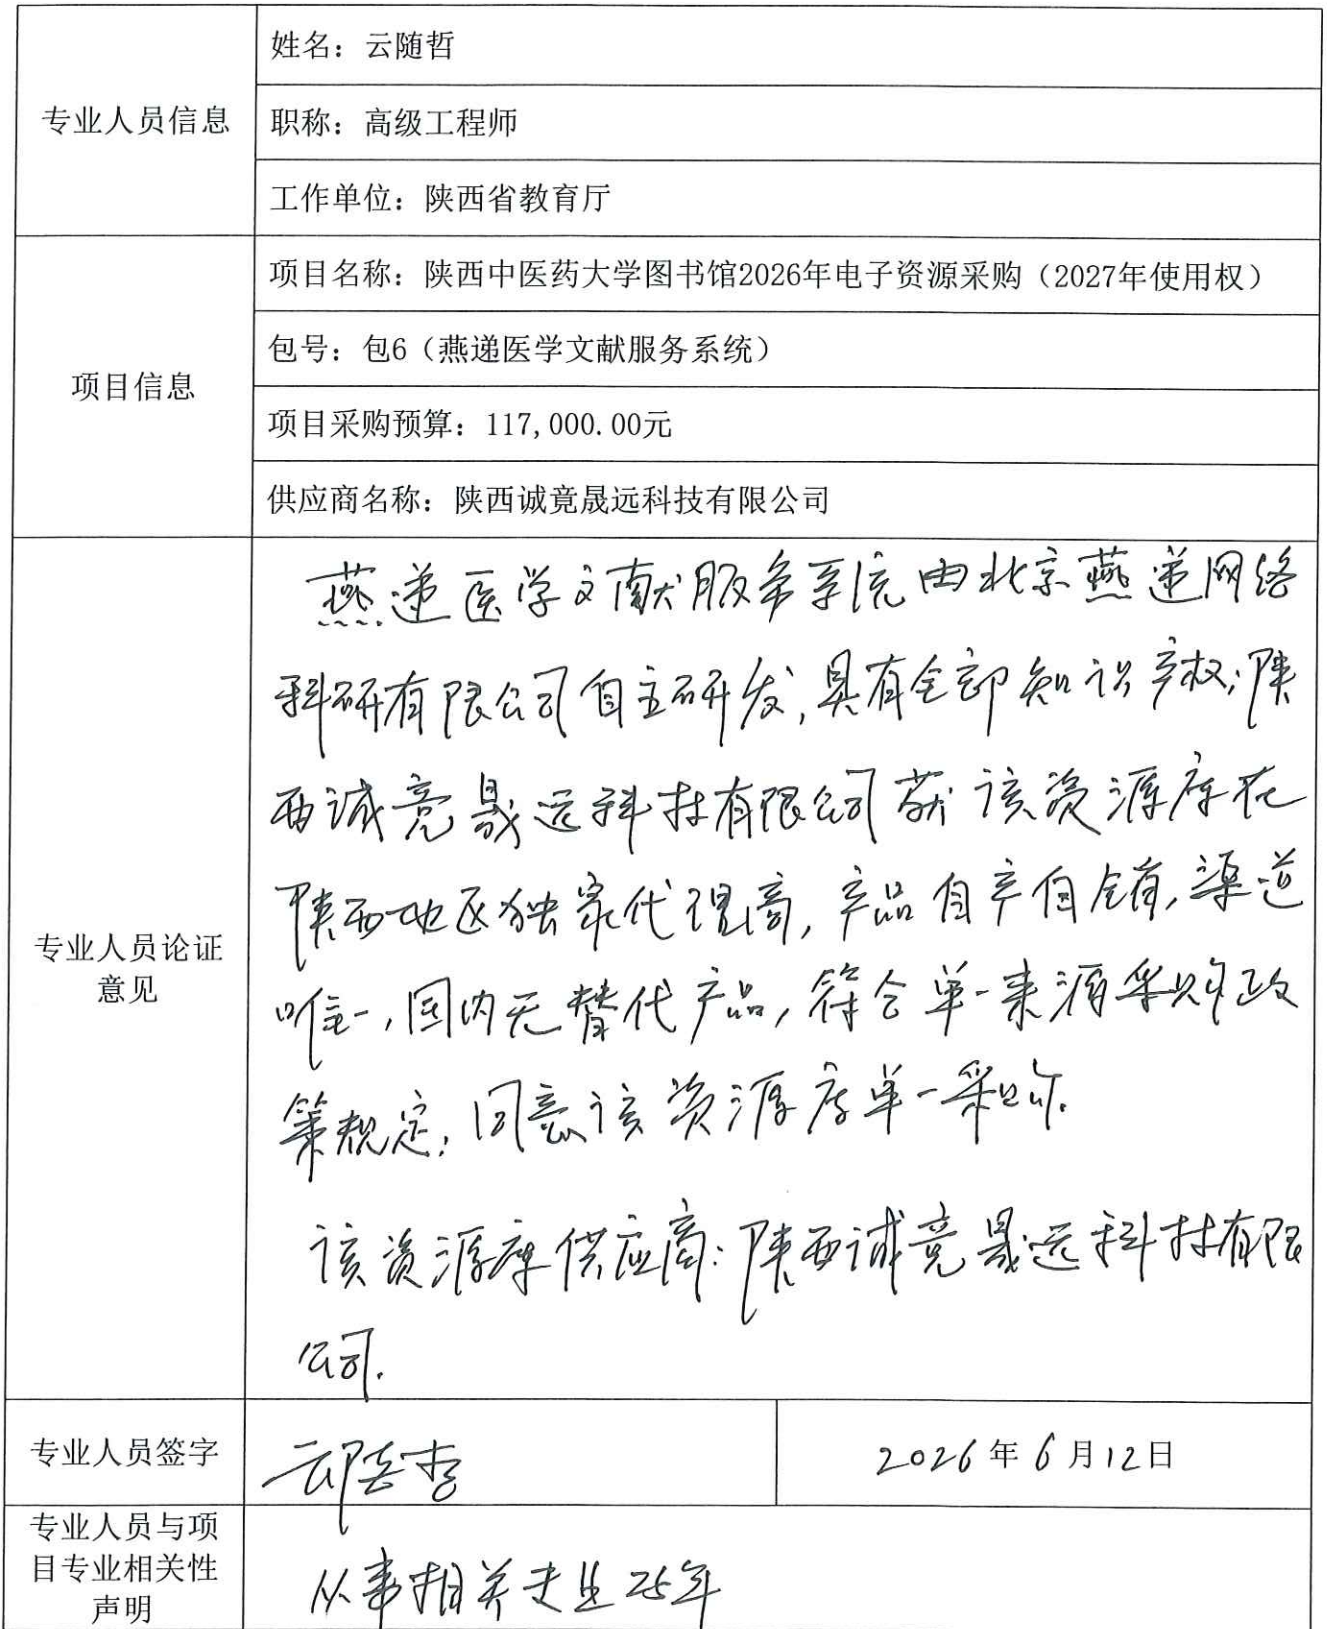 姓名：云随哲
专业人员信息
职称：高级工程师
工作单位：陕西省教育厅
项目信息
项目名称：陕西中医药大学图书馆2026年电子资源采购（2027年使用权）
包号：包6（燕递医学文献服务系统）
项目采购预算：117,000.00元
供应商名称：陕西诚竟晟远科技有限公司
专业人员论证
意见
燕递医学文献服务系统由北京燕递网络
科研有限公司自主研发，具有全部知识产权；陕
西诚竟晟远科技有限公司获该资源库在
陕西地区独家代理商，产品自产自销，渠道
唯一，国内无替代产品，符合单一来源采购政
策规定，同意该资源库单一采购。
该资源库供应商：陕西诚竟晟远科技有限
公司.
专业人员签字
云随哲
2026年6月12日
专业人员与项
目专业相关性
声明
从事相关专业25年